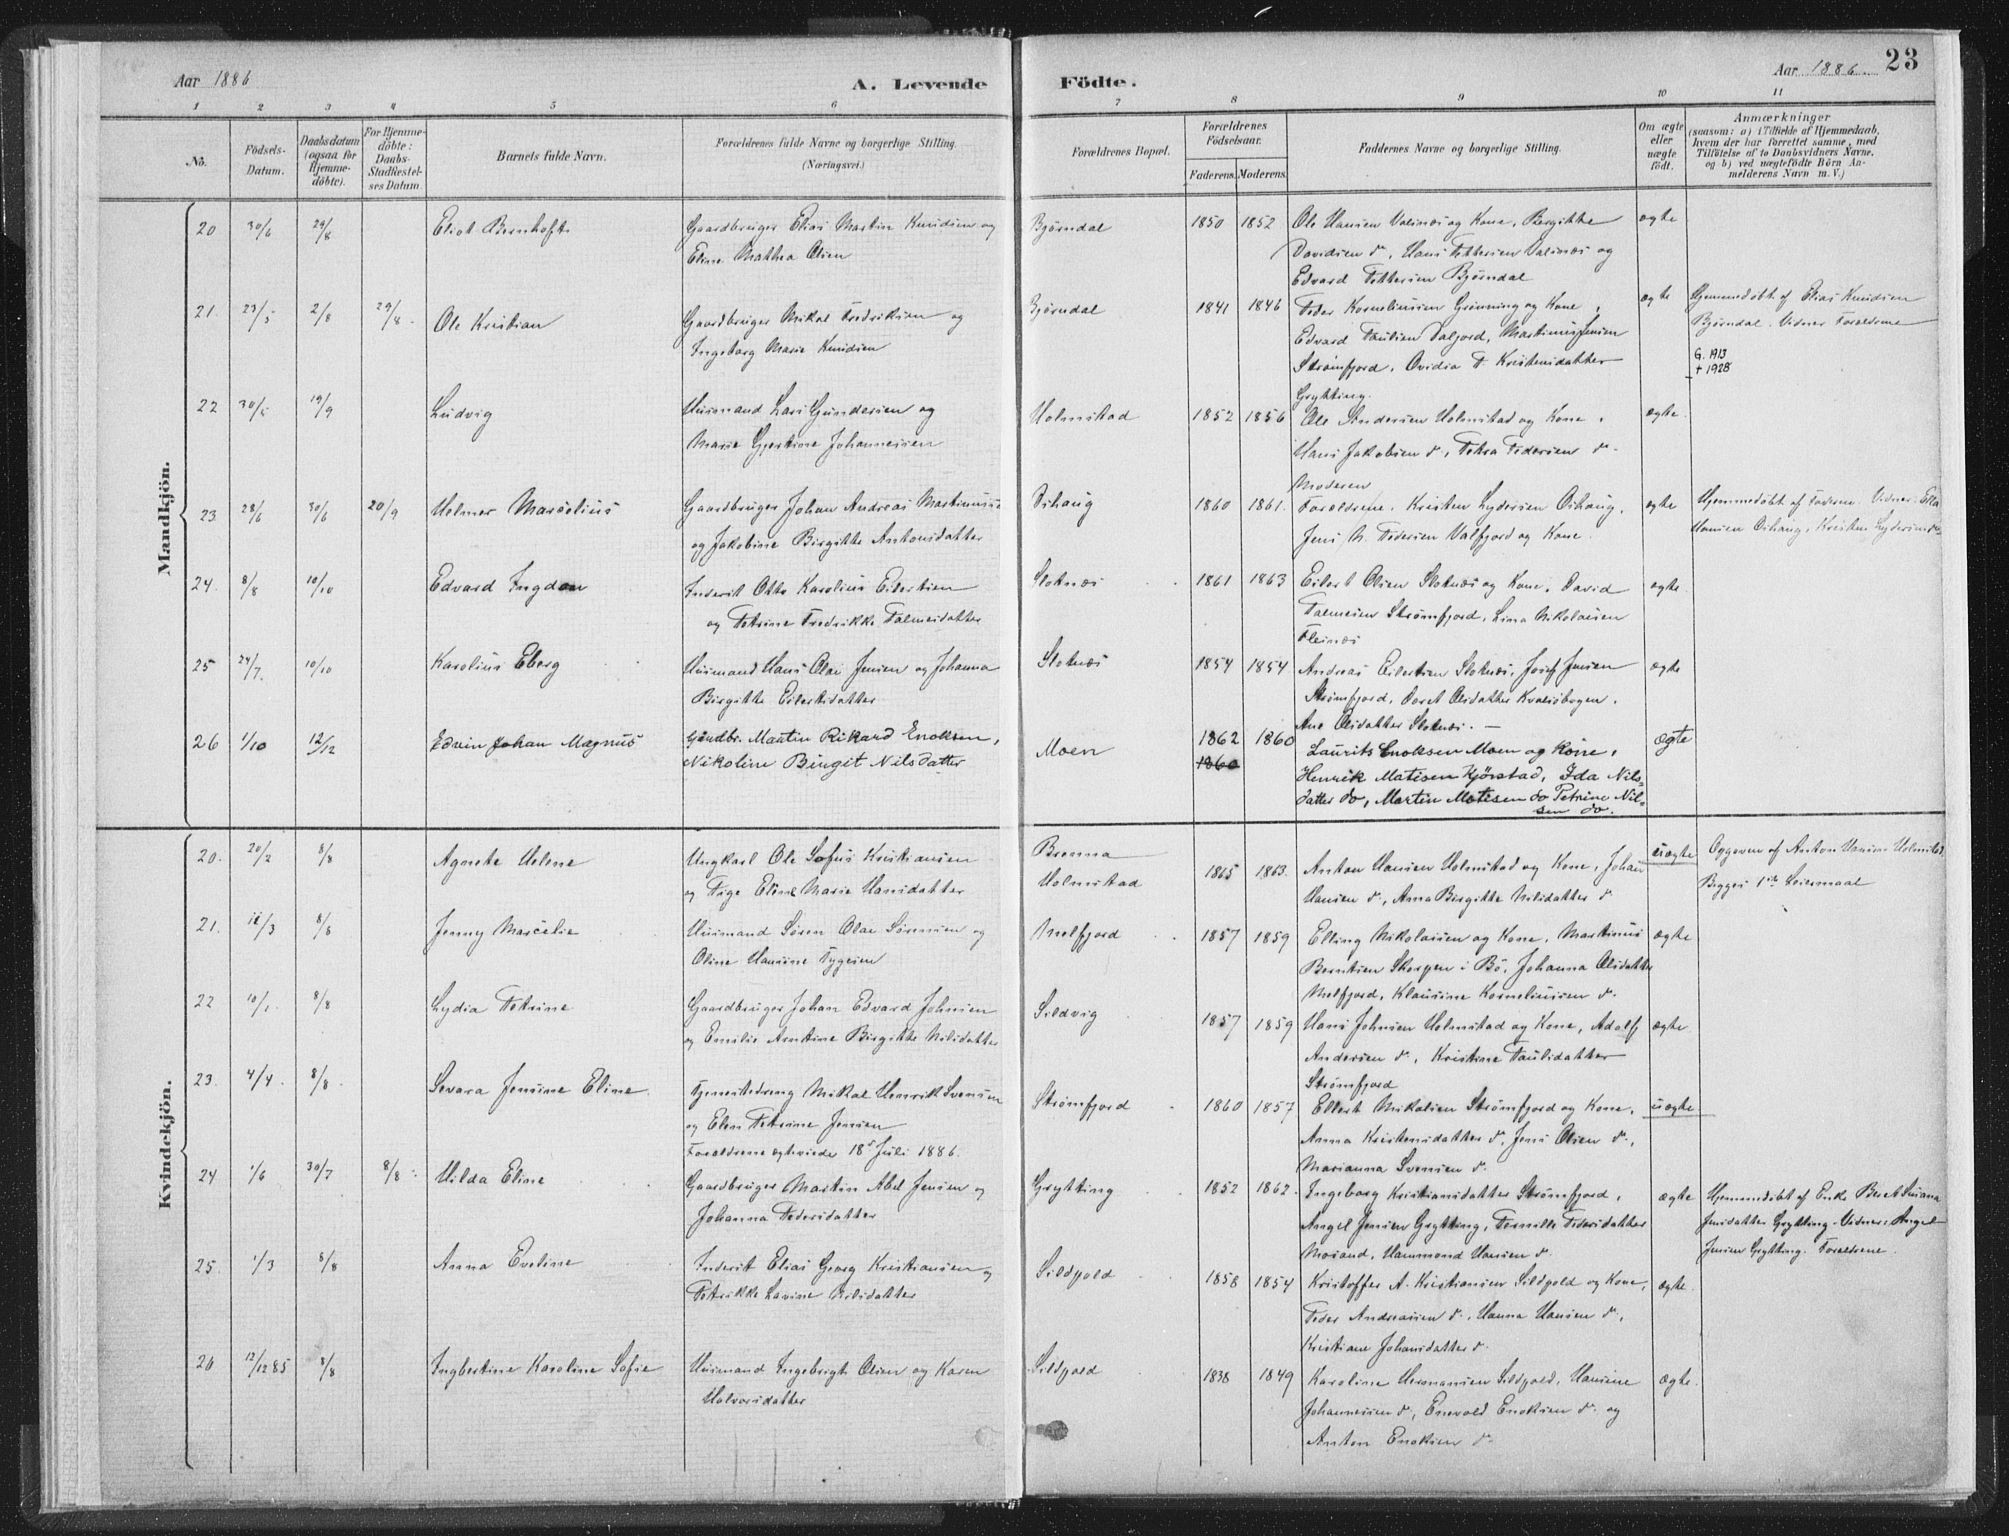 Aar 1886
A. Levende
Födte.
Aar 1886.
23
1 2 3 4 5 6 7 8 9 10 11
No.
Födsels-
Datum.
Daabsdatum
(ogsaa for
Hjemme-
döbte).
For Hjemme-
döbte:
Daabs-
Stadfæstel-
ses Datum.
Barnets fulde Navn.
Forældrenes fulde Navne og borgerlige Stilling.
(Næringsvei.)
Forældrenes Bopæl.
Forældrenes
Födselsaar.
Faderens. Moderens.
Faddernes Navne og borgerlige Stilling.
Om ægte
eller
uægte
födt.
Anmærkninger
(saasom: a) i Tilfælde af Hjemmedaab,
hvem der har forrettet samme, med
Tilföielse af to Daabsvidners Navne,
og b) ved uægtefödte Börn An-
melderens Navn m. V.)
Mandkjön.
20 30/6 29/8 Eliot Bernhoft Gaardbruger Elias Martin Knudsen og
Eline Mathea Olsen
Bjørndal 1850 1852 Ole Hansen Valsnæs og Kone, Bergithe
Davidsen do, Hans Pettersen Valsnæs og
Edvard Pettersen Bjørndal
ægte
21. 23/5 2/8 29/8 Ole Kristian Gaardbruger Mikal Fredriksen og
Ingeborg Marie Knudsen
Bjørndal 1841 1846 Peder Korneliussen Grønning og Kone,
Edvard Paulsen Valfjord, Martinus Jensen
Strømfjord, Ovidia P. Kristensdatter
Grytting.
ægte
Hjemmedøbt af Elias Knudsen
Bjørndal. Vidner Forældrene
G. 1913
+ 1928
22 30/5 19/9 Ludvig Huusmand Lars Gundersen og
Marie Gjertine Johannesen
Holmstad 1852 1856 Ole Andersen Holmstad og Kone,
Hans Jakobsen do, Petra Pedersen do
Moderen
ægte
23 28/6 30/6 20/9 Helmer Marselius Gaardbruger Johan Andreas Martinussen
og Jakobine Birgitte Antonsdatter
Oihaug 1860 1861. Forældrene, Kristen Lydersen Oihaug,
Jens N. Pedersen Valfjord og Kone
ægte
Hjemmedøbt af Faderen. Vidner: Ella
Hansen Oihaug, Kristen Lydersen do
24. 8/8 10/10 Edvard Ingdon Inderst Otto Karolius Eilertsen
og Petrine Fredrikke Palmesdatter
Sloknæs 1861 1863 Eilert Olsen Sloknæs og Kone, David
Palmesen Strømfjord, Lina Nikolaisen
Fleinæs
ægte
25 24/7. 10/10 Karolius Eberg Huusmand Hans Olai Jensen og Johanna
Birgitte Eilertsdatter
Sloknæs 1854 1854 Andreas Eilertsen Sloknæs, Josef Jensen
Strømfjord, Beret Olsdatter Kvalsøbogen,
Ane Olsdatter Sloknæs. —
ægte
26 1/10 12/12 Edvin Johan Magnus Gårdbr. Martin Rikard Enoksen,
Nikoline Birgit Nilsdatter
Moen 1862 1860
1860
Laurits Enoksen Moen og Kone,
Henrik Matisen Kjörstad, Ida Nils-
datter do, Martin Matisen do Petrine Nil-
sen do.
ægte
Kvindekjön.
20. 20/2 8/8 Agnete Helene Ungkarl Ole Sofus Kristiansen
og Pige Eline Marie Hansdatter
Brenna
Holmstad
1865 1863. Anton Hansen Holmstad og Kone, Johan
Hansen do, Anna Birgitte Nilsdatter do
uægte
Opgeven af Anton Hansen Holmstad
Begges 1ste Leiermaal
21. 11/3 8/8 Jenny Marcelie Huusmand Søren Olai Sørensen og
Oline Hansine Tygesen
Melfjord 1857 1859 Elling Nikolaisen og Kone, Martinus
Berntsen Skorpen i Bø, Johanna Olsdatter
Melfjord, Klausine Korneliussen do
ægte
22 10/1. 8/8 Lydia Petrine Gaardbruger Johan Edvard Johnsen
og Emilie Arntine Birgitte Nilsdatter
Sildvig 1857 1859 Hans Johnsen Holmstad og Kone, Adolf
Andersen do, Kristine Paulsdatter
Strømfjord
ægte
23. 4/4. 8/8. Sevara Jensine Eline. Tjenestedreng Mikal Henrik Svensen
og Elen Petrine Jensen
Forældrene ægteviede 18de Juli 1886.
Strømfjord 1860 1857 Ellert Mikalsen Strømfjord og Kone,
Anna Kristensdatter do, Jens Olsen do,
Marianna Svensen do
uægte
24 1/6 30/7 8/8 Hilda Eline Gaardbruger Martin Abel Jensen og
Johanna Pedersdatter
Grytting 1852 1862. Ingeborg Kristiansdatter Strømfjord,
Angel Jensen Grytting, Pernille Pedersdatter
Morand, Hammond Hansen do
ægte
Hjemmedøbt af Enke Beret Susana
Jensdatter Grytting. Vidner: Angel
Jensen Grytting. Forældrene
25. 1/3 8/8 Anna Eveline Inderst Elias Georg Kristiansen og
Petrikke Lavine Nilsdatter
Sildpold 1858 1854 Kristoffer A. Kristiansen Sildpold og Kone,
Peder Andreassen do, Hanna Hansen do,
Kristiane Johansdatter do
ægte
26 12/12 85 8/8 Ingbertine Karoline Sofie Huusmand Ingebrigt Olsen og Karen
Halvorsdatter
Sildpold 1838 1849 Karoline Hermansen Sildpold, Hansine
Johannesen do, Enevold Enoksen do og
Anton Enoksen do
ægte.